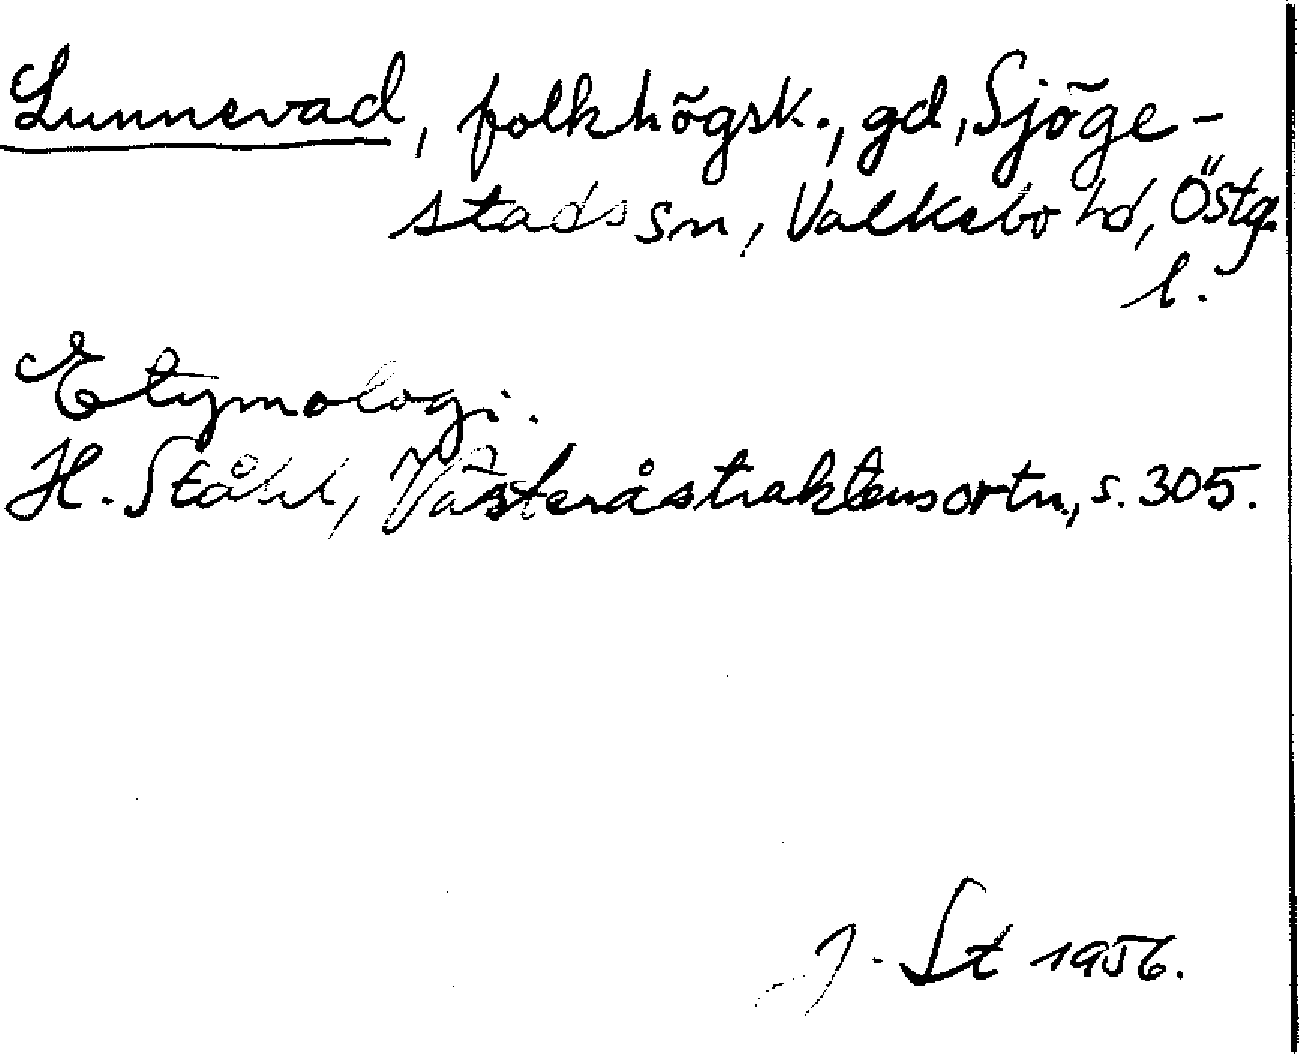 Lunnevad, folkhögsk., gd, Sjöge-
stads sn, Valkebo hd, Östg.
l.
Etymologi.
H. Ståhl, Västeråstraktens ortn., s. 305.
J. St 1956.